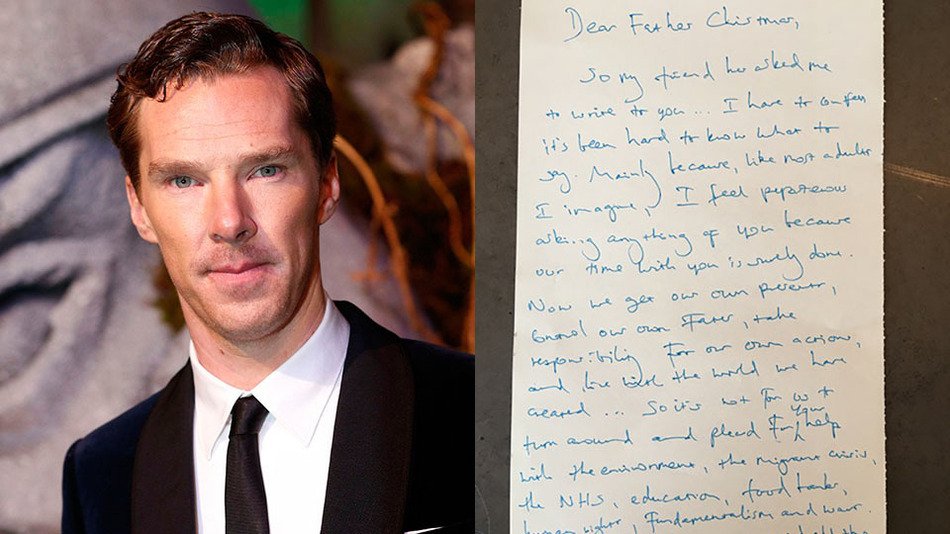 Dear Father Christmas,
So my friend has asked me
to write to you... I have to confess
it's been hard to know what to
say. Mainly because, like most adults
I imagine, I feel
asking anything of you because
our time with you is surely done.
Now we get our own presents,
control our own Fates, take
responsibility for our own actions,
and live with the world we have
created... So it's not for us to
turn around and plead for your help
with the environment, the migrant crisis,
the NHS, education, food banks,
human rights, Fundamentalism and war.